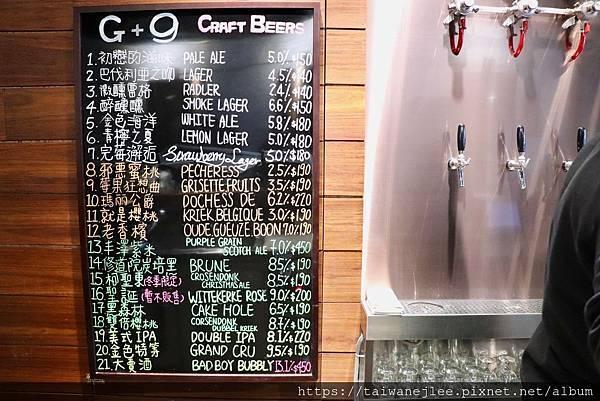 G+9 CRAFT BEERS
1.初戀的滋味 PALE ALE 5.0% $150
2.巴伐利亞之吻 LAGER 4.5% $140
3.微醺雷格 RADLER 2.4% $140
4.醉醺醺 SMOKE LAGER 6.6% $150
5.金色海洋 WHITE ALE 5.8% $180
6.青檸之夏 LEMON LAGER 5.0% $180
7.完莓邂逅 Strawberry Lager 5.0% $180
8.邪惡蜜桃 PECHERESS 2.5% $190
9.莓果狂想曲 GRISETTE FRUITS 3.5% $190
10.瑪丽公爵 DOCHESS DE 6.2% $220
11.就是櫻桃 KRIEK BELGIQUE 3.0% $190
12.老香檳 OUDE GUEUZE BOON 7.0% $190
13.半澤紫米 PURPLE GRAIN SCOTCH ALE 7.0% $450
14.修道院炭培里 BRUNE 8.5% $190
15.柳聖東(冬季限定) CROSENDONK CHRISTMAS ALE 8.5% $190
16.聖誕(暫不販售) WITTEKERKE ROSE 9.0% $200
17.黑森林 CAKE HOLE 6.5% $190
18.雙倍櫻桃 CORSENDONK DUBBEL KRIEK 8.7% $190
19.美式IPA DOUBLE IPA 8.1% $220
20.金色特等 GRAND CRU 9.5% $190
21.大麥酒 BAD BOY BUBBLY 13.1% $450
https://taiwanejlee.pixnet.net/album